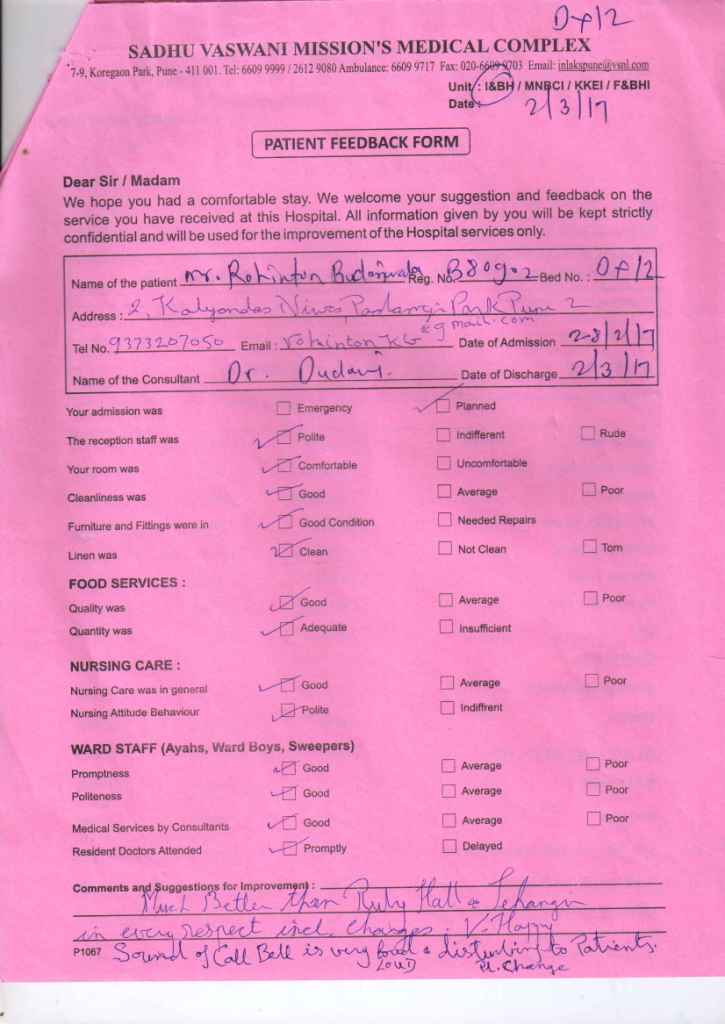 Dx/2
SADHU VASWANI MISSION'S MEDICAL COMPLEX
7-9, Koregaon Park, Pune - 411 001. Tel: 6609 9999 / 2612 9080 Ambulance: 6609 9717 Fax: 020-6609 9703 Email: inlakspune@vsnl.com
Unit : I&BH / MNBCI / KKEI / F&BHI
Date : 2/3/17
PATIENT FEEDBACK FORM
Dear Sir / Madam
We hope you had a comfortable stay. We welcome your suggestion and feedback on the
service you have received at this Hospital. All information given by you will be kept strictly
confidential and will be used for the improvement of the Hospital services only.
Name of the patient Mr. Rohinton Reg. No. B80902 Bed No. : Dx/2
Address : 2, Kalyandas Niwas Park Pune 2
Tel No. 9373207050 Email : rohintonkb@gmail.com Date of Admission 28/2/17
Name of the Consultant Dr. Dudani. Date of Discharge 2/3/17
Your admission was Emergency Planned
The reception staff was Polite Indifferent Rude
Your room was Comfortable Uncomfortable
Cleanliness was Good Average Poor
Furniture and Fittings were in Good Condition Needed Repairs
Linen was Clean Not Clean Torn
FOOD SERVICES :
Quality was Good Average Poor
Quantity was Adequate Insufficient
NURSING CARE :
Nursing Care was in general Good Average Poor
Nursing Attitude Behaviour Polite Indiffrent
WARD STAFF (Ayahs, Ward Boys, Sweepers)
Promptness Good Average Poor
Politeness Good Average Poor
Medical Services by Consultants Good Average Poor
Resident Doctors Attended Promptly Delayed
Comments and Suggestions for Improvement :
Much Better than Ruby Hall & Jehangir
in every respect incl. charges. V. Happy
P1067 Sound of Call Bell is very loud & disturbing to Patients.
LOUD Pl. Change